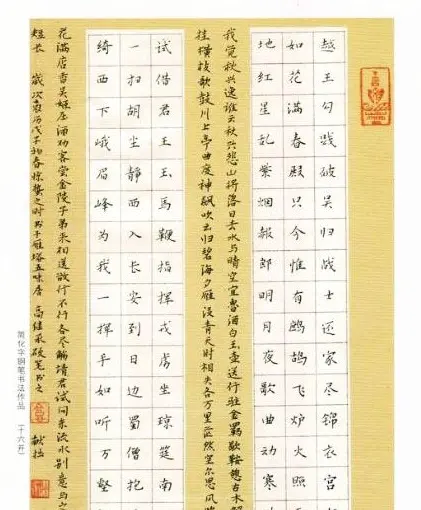 越王勾践破吴归战士还家尽锦衣宫
如花满春殿只今惟有鹧鸪飞炉火照
地红星乱紫烟赧郎明月夜歌曲动寒
我觉秋兴逸谁云秋兴悲山将落日去水与晴空宜鲁酒白玉壶送行驻金羁歇鞍憩古木解
挂横枝歌鼓川上亭曲度神飙吹云归碧海夕雁没青天时相失各万里茫然空尔思风
试借君王玉马鞭指挥戎虏坐琼筵南
一扫胡尘静西入长安到日边蜀僧抱
绮西下峨眉峰为我一挥手如听万壑
花满店香吴姬压酒劝客尝金陵子弟来相送欲行不行各尽觞请君试问东流水别意与之
短长 岁次农历戊子初春惊蛰之时书于雁塔五味居 高继承硬笔书之 献拙
简化字钢笔书法作品 （十六开）